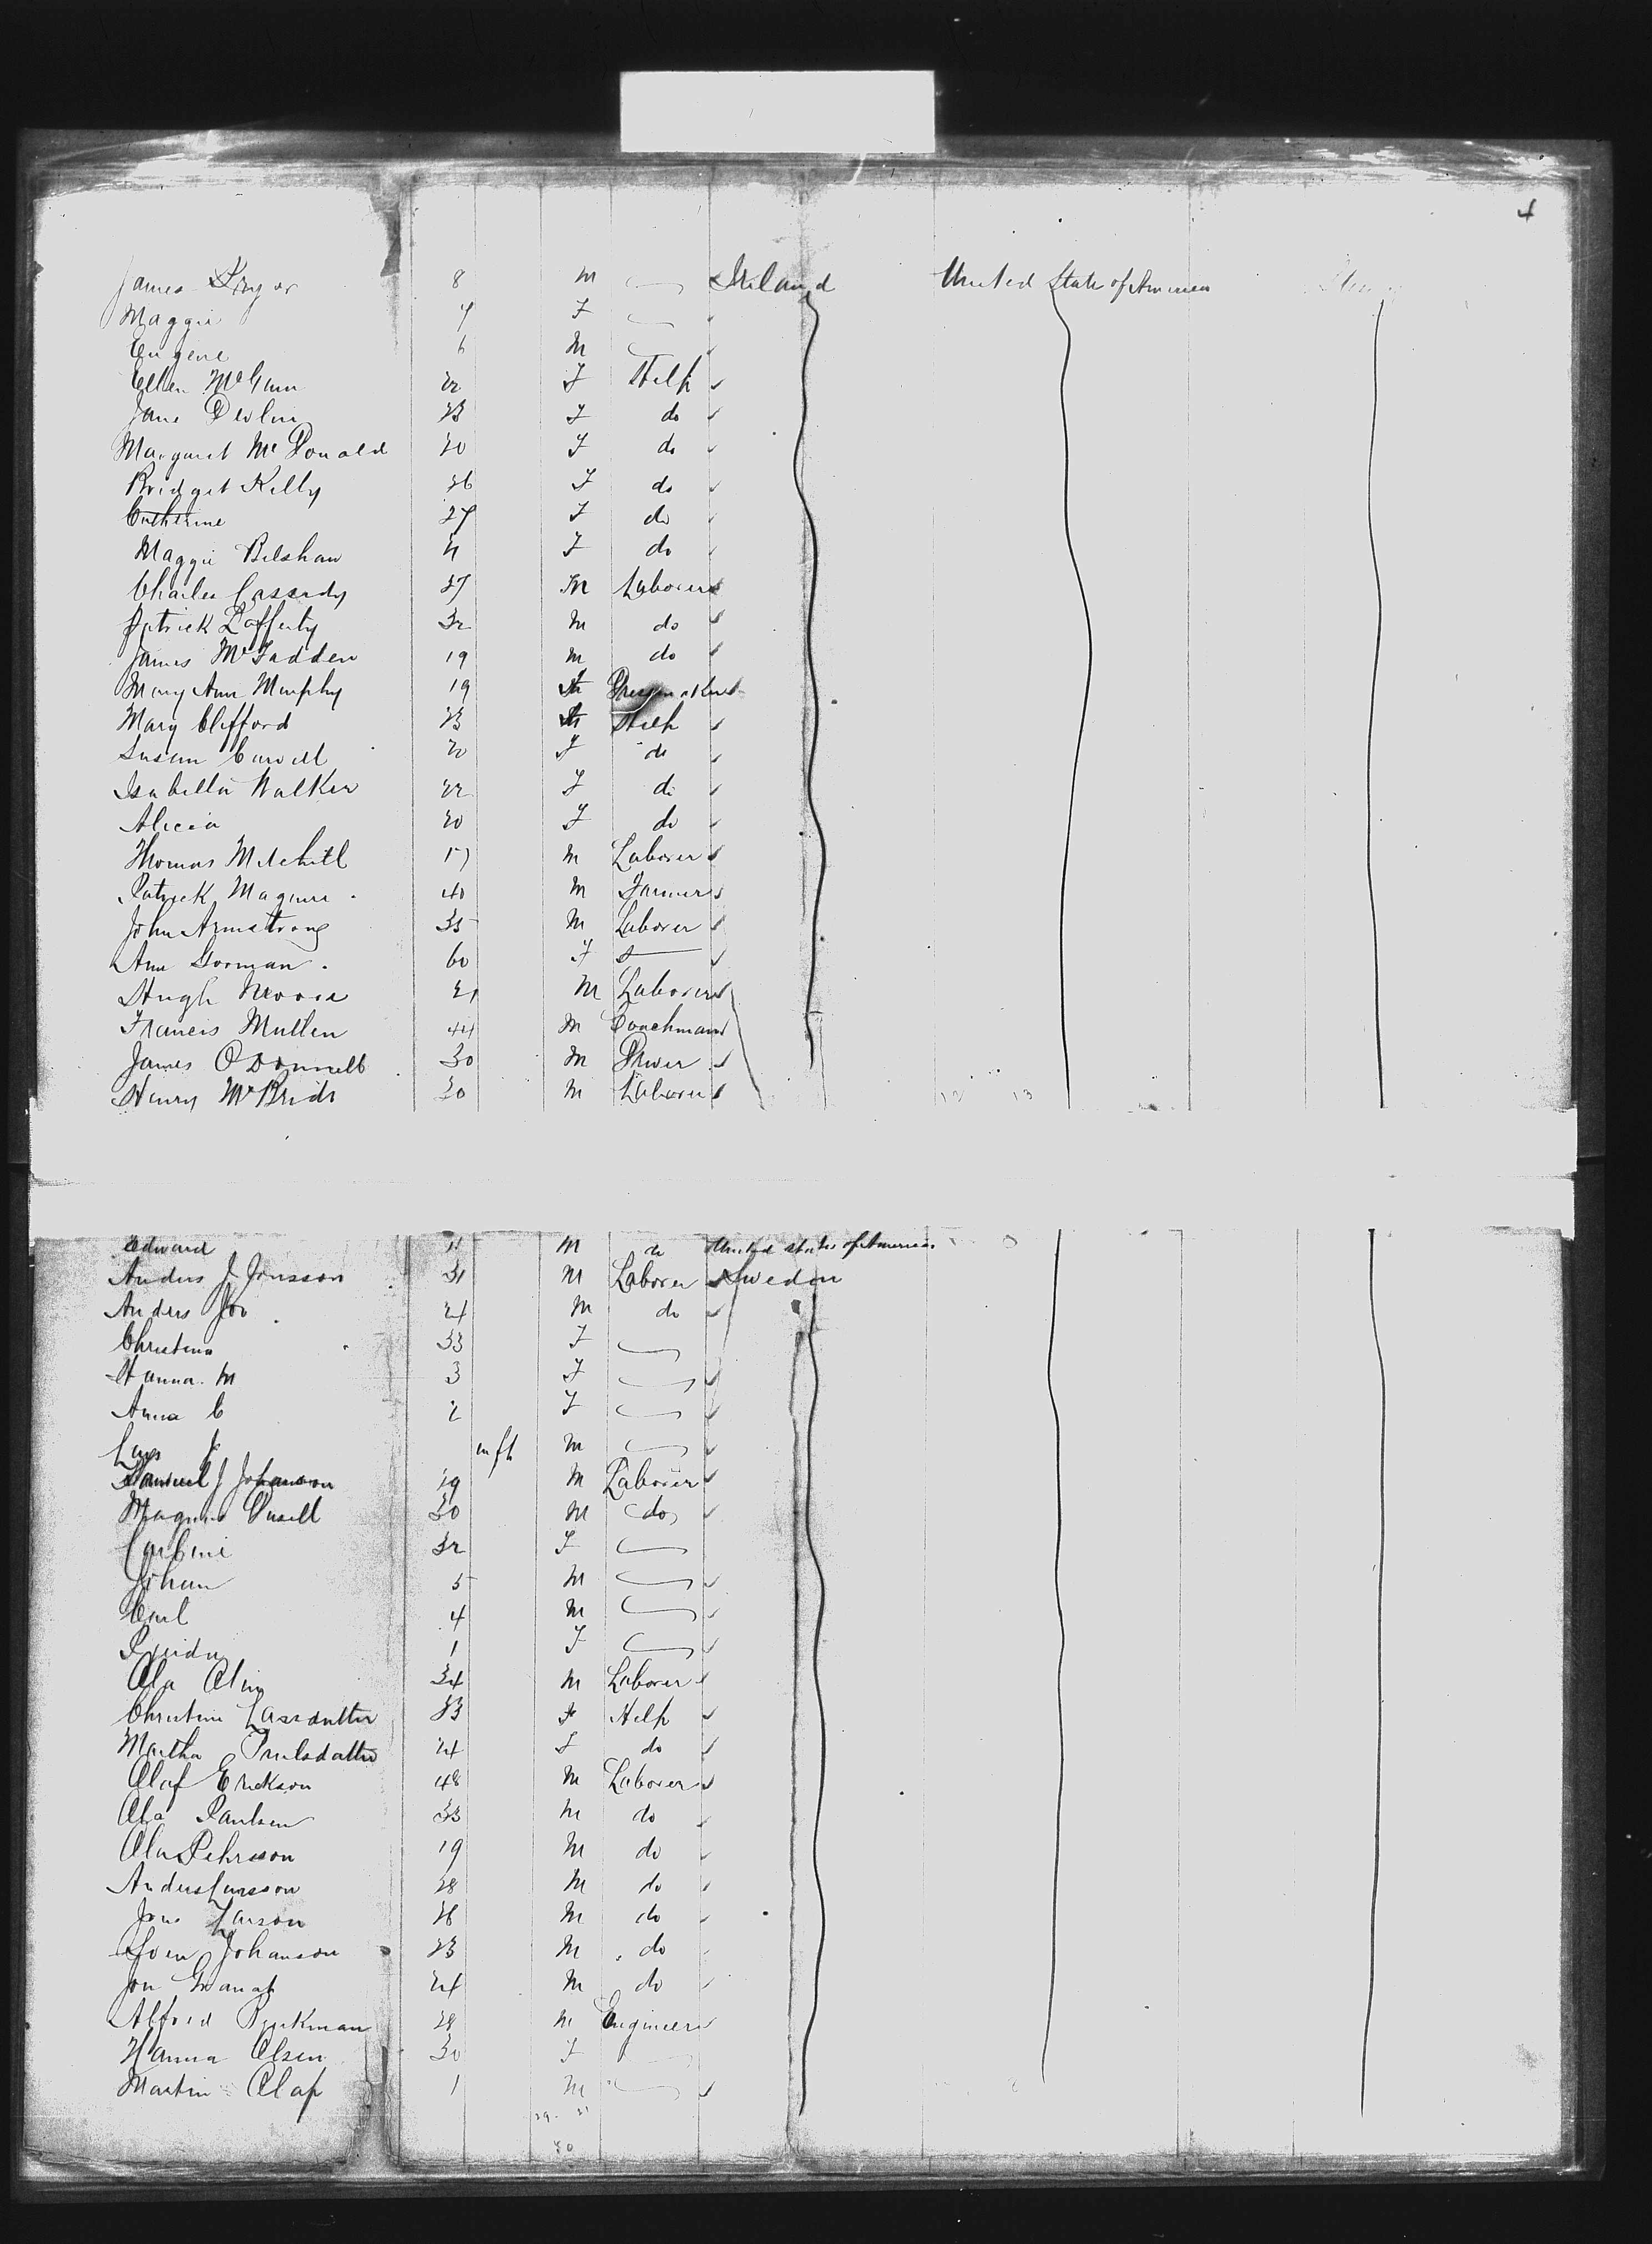 4
James Pryor 8 M Ireland United State of America
Maggie 7 F
Eugene 6 M
Ellen McGann 22 F Help
Jane Devlin 23 F do
Margaret McDonald 20 F do
Bridget Kelly 26 F do
Catherine 27 F do
Maggie Belshaw F do
Charles Cassady 27 M Laborer
Patrick Lafferty 32 M do
James McFadden 19 M do
Mary Ann Murphy 19 Dressmaker
Mary Clifford 23 Help
Susan 20 F do
Isabella Walker 22 F do
Alicia 20 F do
Thomas Mitchell 17 M Laborer
Patrick Maguire 40 M Farmer
John Armstrong 35 M Laborer
Ann Gorman 60 F
Hugh Moore 21 M Laborer
Francis Mullen 44 M Coachman
James ODonnell 30 M
Henry McBride 20 M Laborer
12 13
Edward 11 M United States of America
Anders J Jonsson 31 M Laborer Sweden
Anders 24 M do
Christina 33 F
Hanna M 3 F
Anna C 2 F
Lars inft M
Samuel J Johanson 19 M Laborer
Magnus 30 M do
32 F
Johan 5 M
Carl 4 M
1 F
Ola 34 M Laborer
Christine Larsdatter 23 F Help
Martha 24 F do
Olof Erickson 48 M Laborer
Ola Paulsen 33 M do
Ola Pehrsson 19 M do
Anders Larsson 28 M do
Larson 26 M do
Sven Johanson 23 M do
Jon 24 M do
Alfred 28 M Engineer
Hanna Olsen 30 F
Martin Olaf 1 M
29 21
50